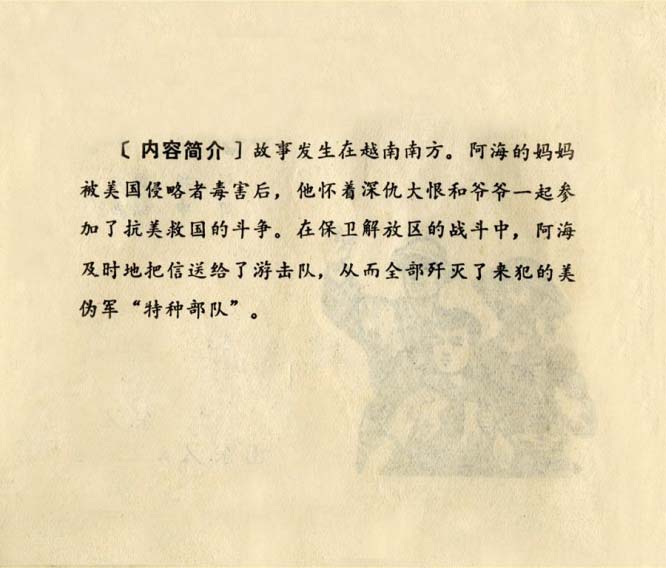 〔内容简介〕故事发生在越南南方。阿海的妈妈
被美国侵略者毒害后，他怀着深仇大恨和爷爷一起参
加了抗美救国的斗争。在保卫解放区的战斗中，阿海
及时地把信送给了游击队，从而全部歼灭了来犯的美
伪军“特种部队”。